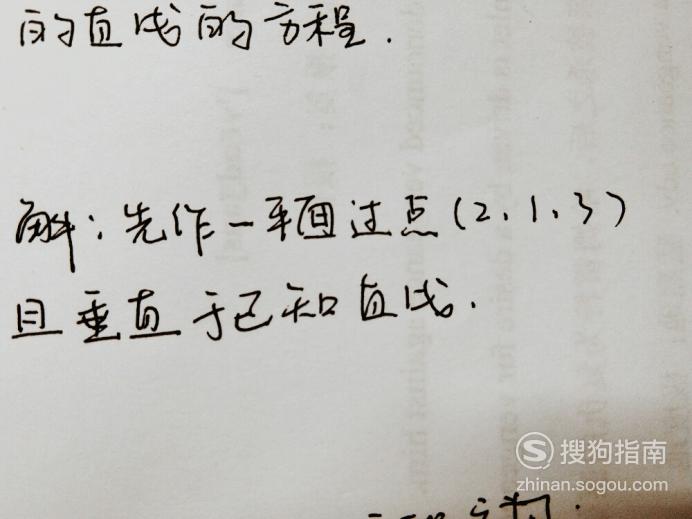 的直线的方程.
解:先作一平面过点(2、1、3)
且垂直于已知直线.
搜狗指南
zhinan.sogou.com